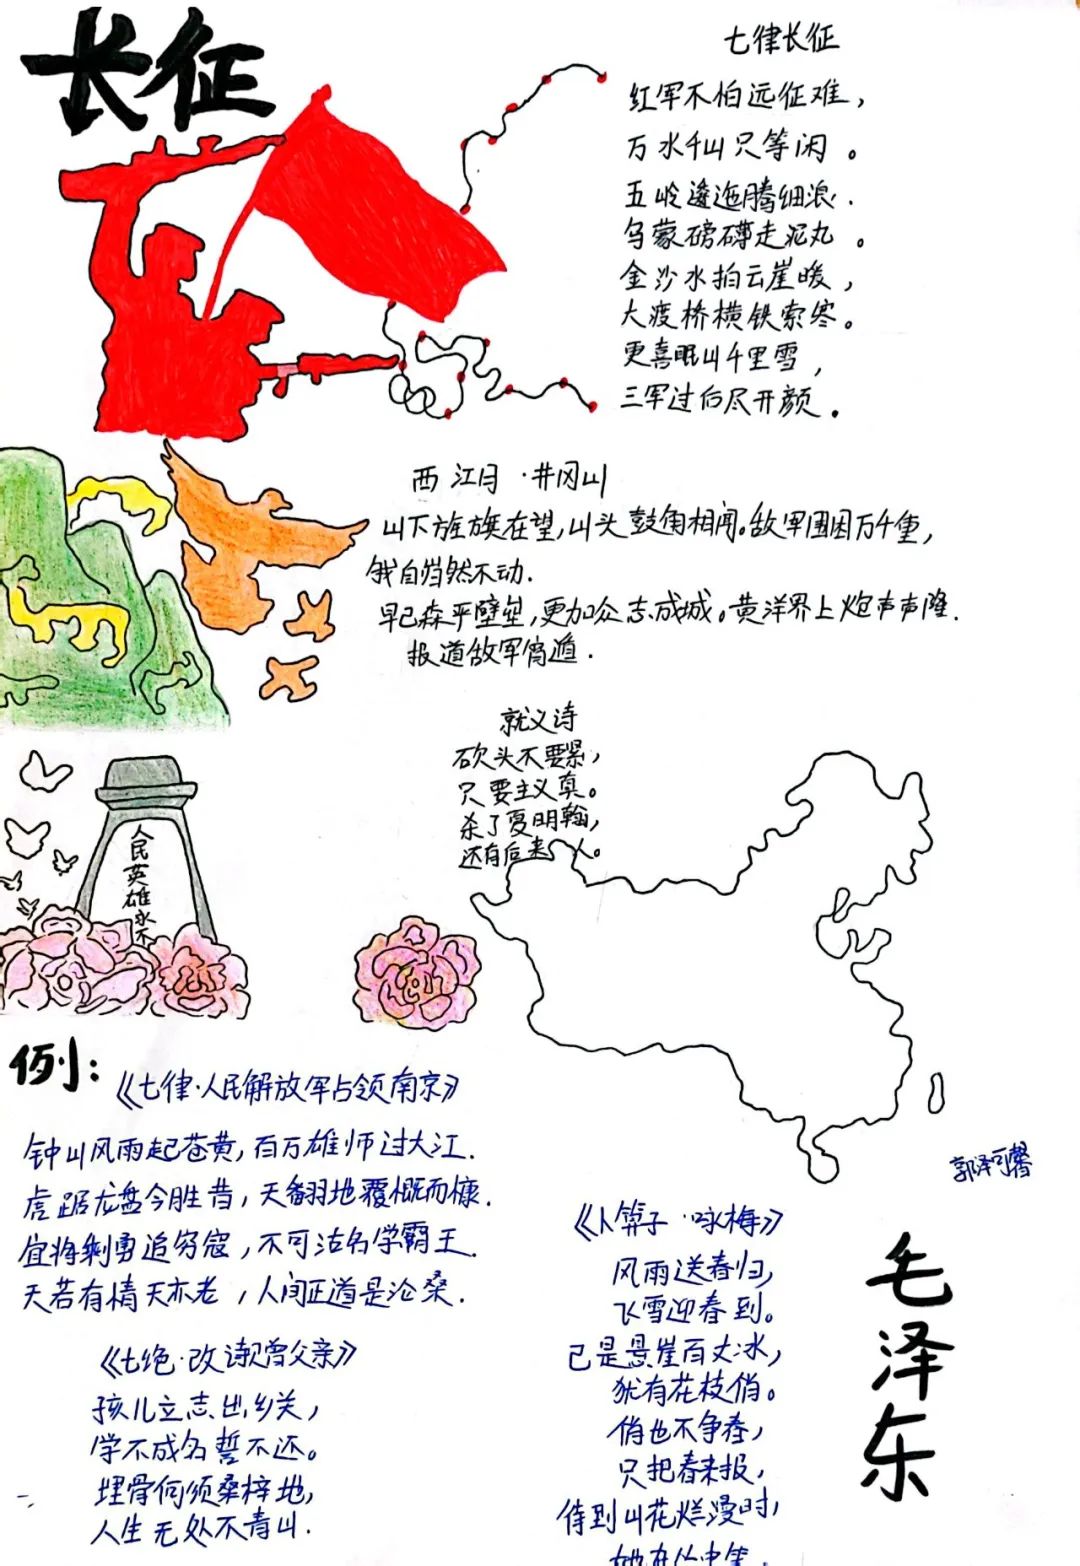 长征
七律长征
红军不怕远征难，
万水千山只等闲。
五岭逶迤腾细浪.
乌蒙磅礴走泥丸。
金沙水拍云崖暖，
大渡桥横铁索寒。
更喜岷山千里雪，
三军过后尽开颜。
西江月·井冈山
山下旌旗在望，山头鼓角相闻。敌军围困万千重，
我自岿然不动.
早已森严壁垒，更加众志成城。黄洋界上炮声隆.
报道敌军宵遁.
就义诗
砍头不要紧，
只要主义真。
杀了夏明翰，
还有后来人。
人民英雄永不
例：
《七律·人民解放军占领南京》
钟山风雨起苍黄，百万雄师过大江.
虎踞龙盘今胜昔，天翻地覆慨而慷.
宜将剩勇追穷寇，不可沽名学霸王.
天若有情天亦老，人间正道是沧桑.
《七绝·改诗赠父亲》
孩儿立志出乡关，
学不成名誓不还。
埋骨何须桑梓地，
人生无处不青山.
郭泽可馨
《卜算子·咏梅》
风雨送春归，
飞雪迎春到。
已是悬崖百丈冰，
犹有花枝俏。
俏也不争春，
只把春来报，
待到山花烂漫时，
她在丛中笑.
毛泽东